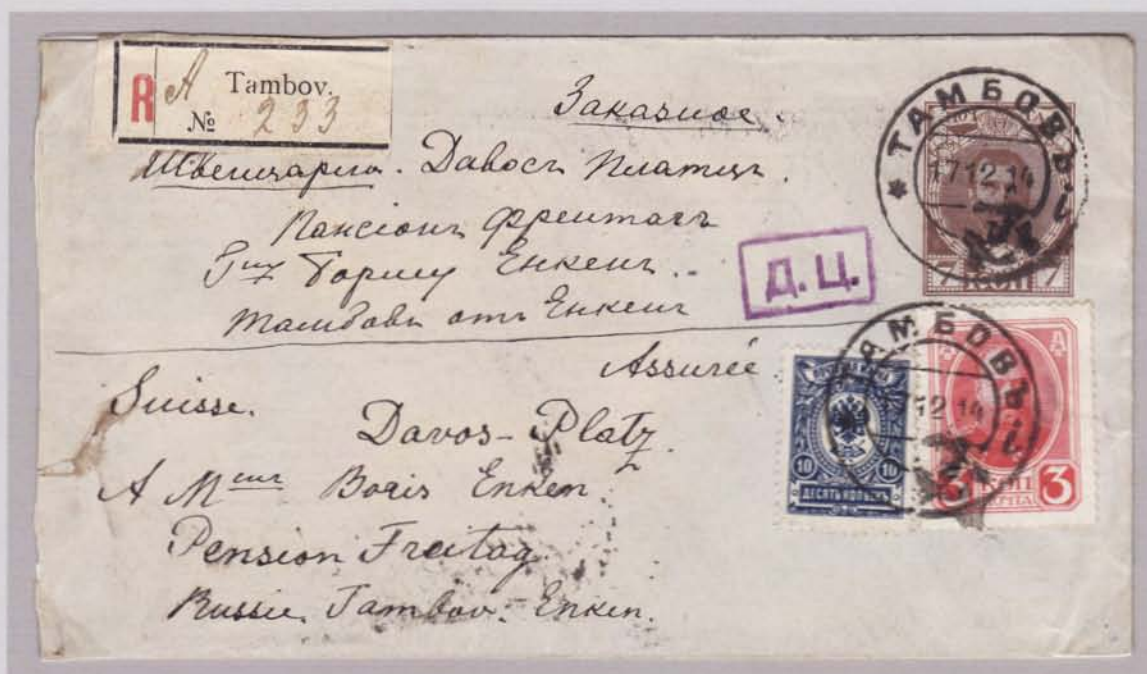 R A Tambov.
№ 233
Заказное.
Швейцарія. Давосъ Платцъ.
Пансіонъ Фрейтагъ
Г-ну Борису Енкенъ.
Тамбовъ отъ Енкенъ
Д.Ц.
ТАМБОВЪ
17 12 14
7 КОП 7
Assurée
Suisse.
Davos-Platz
A Meur Boris Enken.
Pension Freitag.
Russie Tambov. Enken.
ТАМБОВЪ
12 14
10 10
ДЕСЯТЬ КОПѢЕКЪ
3 КОП 3